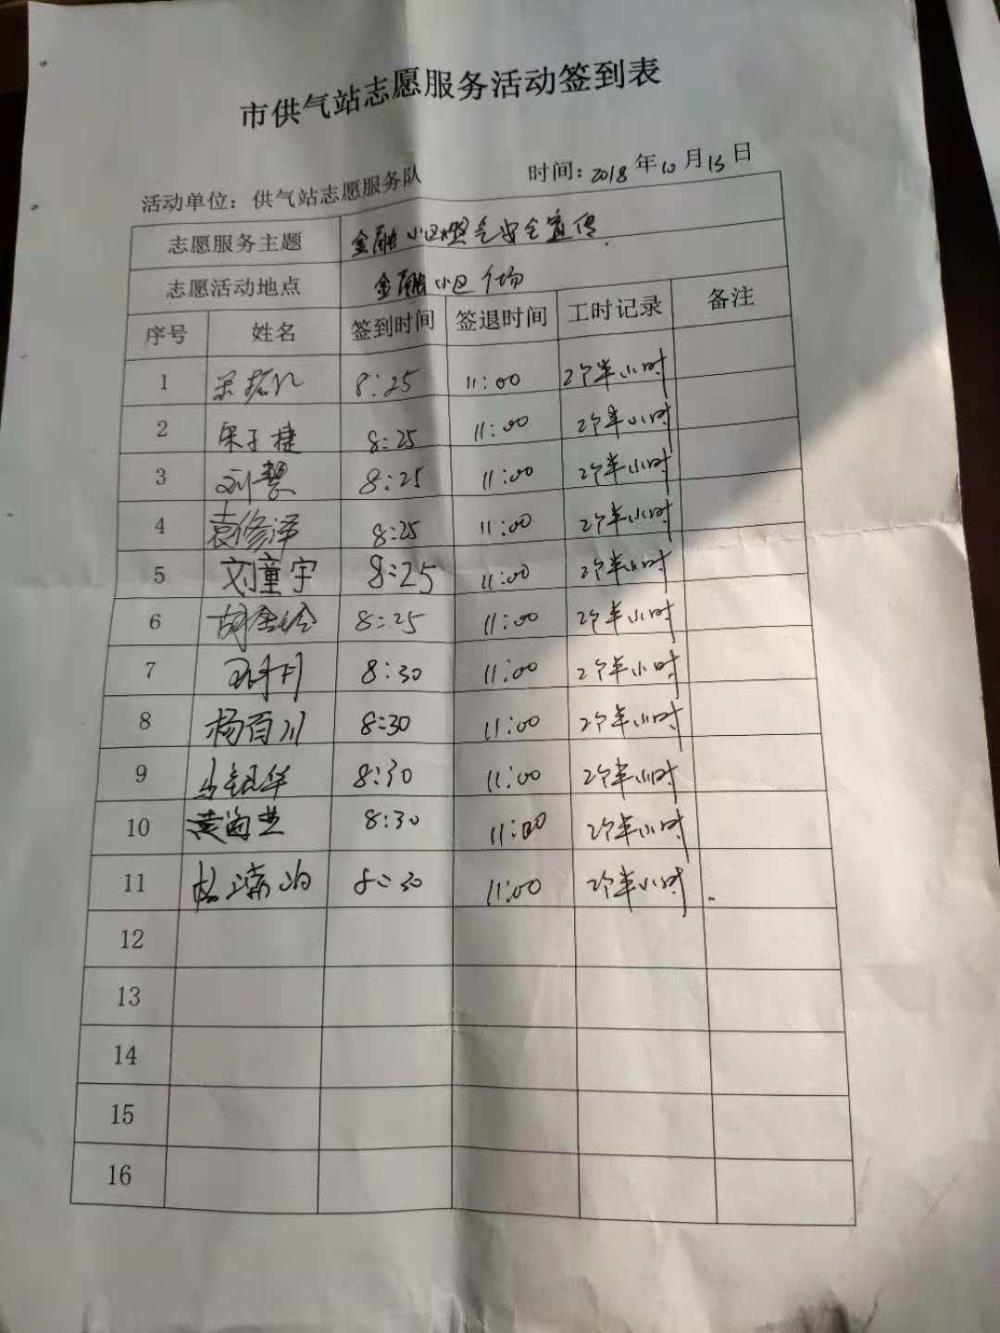 市供气站志愿服务活动签到表
活动单位：供气站志愿服务队 时间：2018年10月13日
志愿服务主题 金融小区燃气安全宣传
志愿活动地点 金融小区广场
序号 姓名 签到时间 签退时间 工时记录 备注
1 8:25 11:00 2个半小时
2 8:25 11:00 2个半小时
3 刘慧 8:25 11:00 2个半小时
4 袁修泽 8:25 11:00 2个半小时
5 刘童宇 8:25 11:00 2个半小时
6 8:25 11:00 2个半小时
7 8:30 11:00 2个半小时
8 杨百川 8:30 11:00 2个半小时
9 8:30 11:00 2个半小时
10 8:30 11:00 2个半小时
11 8:30 11:00 2个半小时
12
13
14
15
16